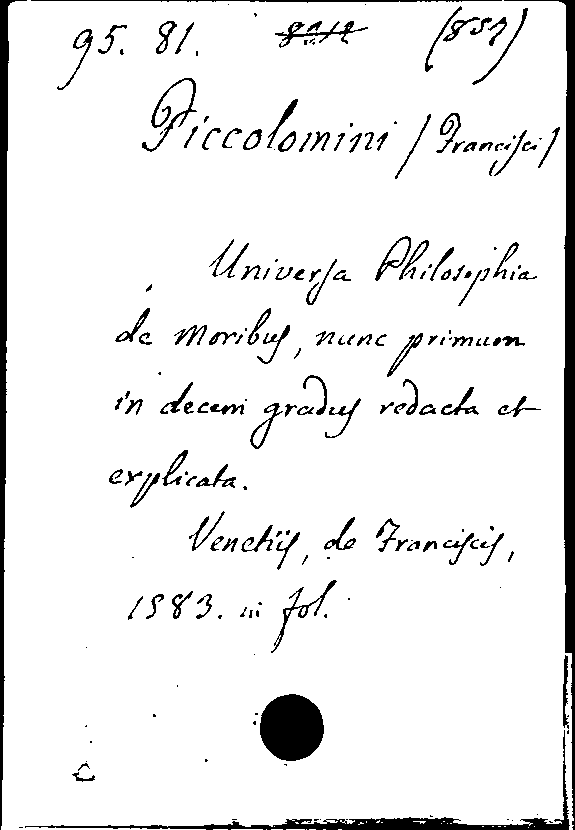 95. 81. (857)
Piccolomini / Francisci /
Universa Philosophia
de moribus, nunc primum
in decem gradus redacta et
explicata.
Venetiis, de Franciscis,
1583. in fol.